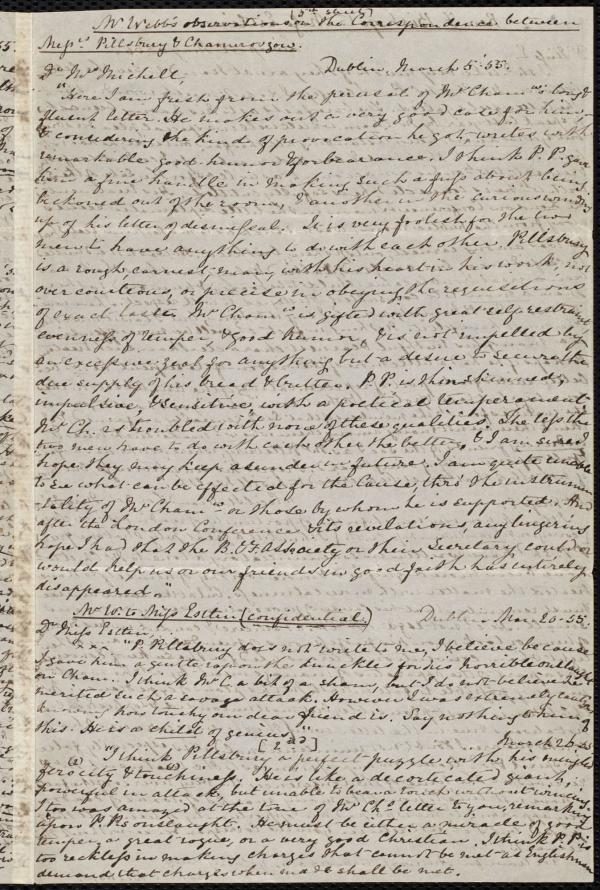 (3rd sheet)
Mr Webb's observations on the Correspondence between
Messrs Pillsbury & Chamerovzow.
Dr Mr Michell, Dublin, March 5. 55.
"Here I am fresh from the perusal of Mr Cham's long &
fluent letter. He makes out a very good case for him,
& considering the kind of provocation he got, writes with
remarkable good humor & forbearance. I think P.P. gave
him a fine handle in making such a fuss about being
beckoned out of the room, & another in the curious winding
up of his letter of dismissal. It is very foolish for the two
men to have anything to do with each other. Pillsbury
is a rough, earnest man, with his heart in his work, not
over courteous, or precise in obeying the requisitions
of exact taste. Mr Cham is gifted with great self restraint
evenness of temper, & good humor, & is not impelled by
an excessive zeal for anything but a desire to secure the
due supply of his bread & butter. P.P. is thinskinned,
impulsive, & sensitive, with a poetical temperament
Mr Ch. is troubled with none of these qualities. The less the
two men have to do with each other the better, & I am sure I
hope they may keep asunder in future. I am quite unable
to see what can be effected for the Cause, thro' the instrumen-
tality of Mr Cham or those by whom he is supported. And
after the London Conference & its revelations, any lingering
hope I had that the B. & F. Association or their Secretary could or
would help us or our friends in good faith has entirely
disappeared."
Mr W. to Miss Estlin (confidential.) Dublin, Mar. 20. 55.
Dr Miss Estlin,
"P. Pillsbury does not write to me, I believe because
I gave him a gentle rap on the knuckles for his horrible onslaught
on Cham. I think Mr C. a bit of a sham, but I do not believe he
merited such a savage attack. However I was extremely cautious
knowing how touchy our dear friend is. Say nothing to him of
this. He is a child of genius."
[2nd] March 26. 55
"I think Pillsbury a perfect puzzle with his mingled
ferocity & touchiness. He is like a decorticated giant,
powerful in attack, but unable to bear a touch without wincing.
I too was amazed at the tone of Mr Ch's letter to you, remarking
upon P.P.'s onslaught. He must be either a miracle of good
temper, a great rogue, or a very good Christian. I think P.P. is
too reckless in making charges that cannot be met as Englishmen
demand that charges when made shall be met.